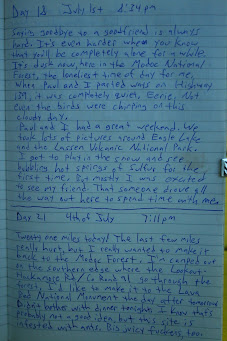 Day 18 July 1st 8:24pm
Saying goodbye to a good friend is always
hard. It's even harder when you know
that you'll be completely alone for a while.
It's dusk now here in the Modoc National
Forest, the loneliest time of day for me.
When Paul and I parted ways on Highway
139, it was completely quiet. Eerie. Not
even the birds were chirping on this
cloudy day.
Paul and I had a great weekend. We
took lots of pictures around Eagle Lake
and the Lassen Volcanic National Park.
I got to play in the snow and see
bubbling hot springs of sulfur for the
first time. But mostly I was excited
to see my friend. That someone drove all
the way out here to spend time with me.
Day 21 4th of July 7:11pm
Twenty one miles today! The last few miles
really hurt, but I really wanted to make it
back to the Modoc Forest. I'm camped out
on the southern edge where the Lookout-
Hackamore Rd/ Road 91 go through the
forest. I'd like to make it to the Lava
Bed National Monument the day after tomorrow.
Didn't bother with dinner tonight. I know that's
probably not a good idea, but this site is
infested with ants. Big suckers, too.